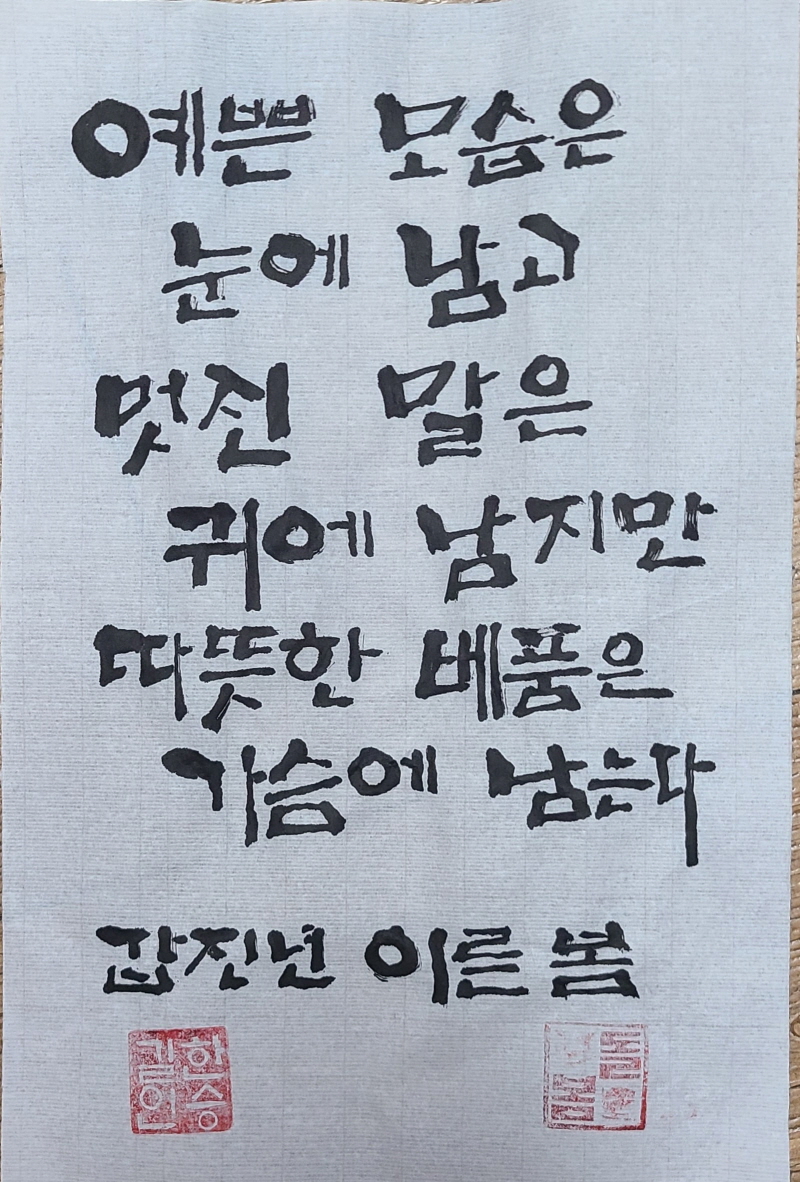 예쁜 모습은
눈에 남고
멋진 말은
귀에 남지만
따뜻한 베품은
가슴에 남는다
갑진년 이른 봄